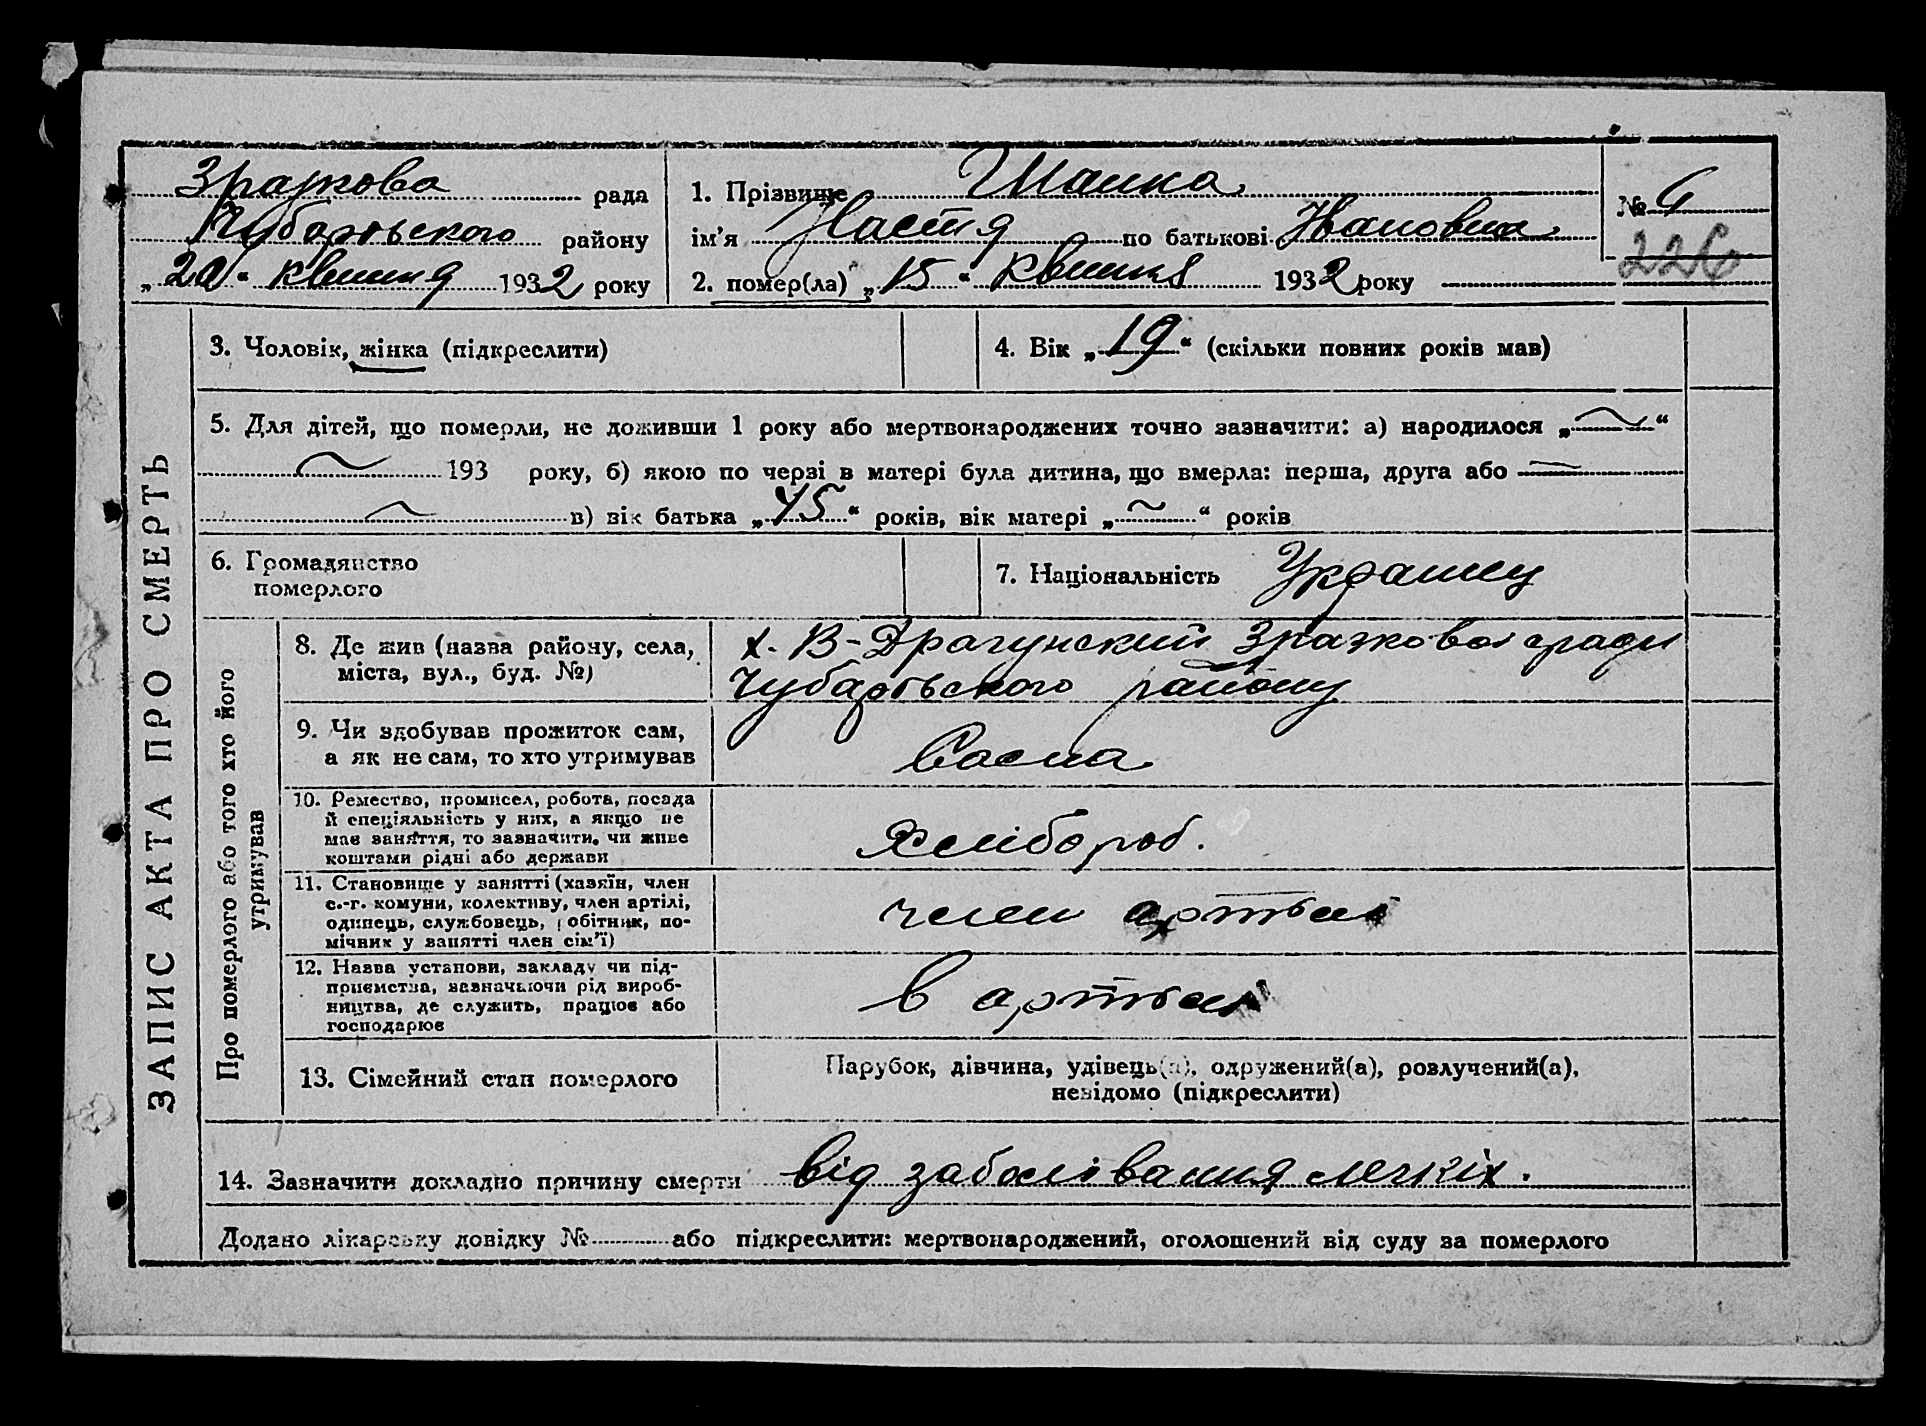 Зразкова рада
Чубарівського району
„20“ квитня 1932 року
1. Прізвище Шапка
ім'я Настя по батькові Івановна
2. помер(ла) „15“ квитня 1932 року
№ 6
226
ЗАПИС АКТА ПРО СМЕРТЬ
3. Чоловік, жінка (підкреслити)
4. Вік „19“ (скільки повних років мав)
5. Для дітей, що померли, не доживши 1 року або мертвонароджених точно зазначити: а) народилося „ “
193 року, б) якою по черзі в матері була дитина, що вмерла: перша, друга або
в) вік батька „45“ років, вік матері „ “ років
6. Громадянство
померлого
7. Національність Украинц
Про померлого або того хто його
утримував
8. Де жив (назва району, села,
міста, вул., буд. №)
х. В-Драгунский Зразковой ради
Чубарівського району
9. Чи здобував прожиток сам,
а як не сам, то хто утримував
Сосма
10. Ремество, промисел, робота, посада
й спеціяльність у них, а якщо не
мав заняття, то зазначити, чи живе
коштами рідні або держави
Хлібороб.
11. Становище у занятті (хазяїн, член
с.-г. комуни, колективу, член артілі,
одинець, службовець, робітник, по-
мічник у занятті член сім'ї)
член артыли
12. Назва установи, закладу чи під-
приємства, зазначаючи рід вироб-
ництва, де служить, працює або
господарює
в артыли
13. Сімейний стан померлого
Парубок, дівчина, удівець(а), одружений(а), розлучений(а),
невідомо (підкреслити)
14. Зазначити докладно причину смерти від заболівания легкіх.
Додано лікарську довідку № або підкреслити: мертвонароджений, оголошений від суду за померлого